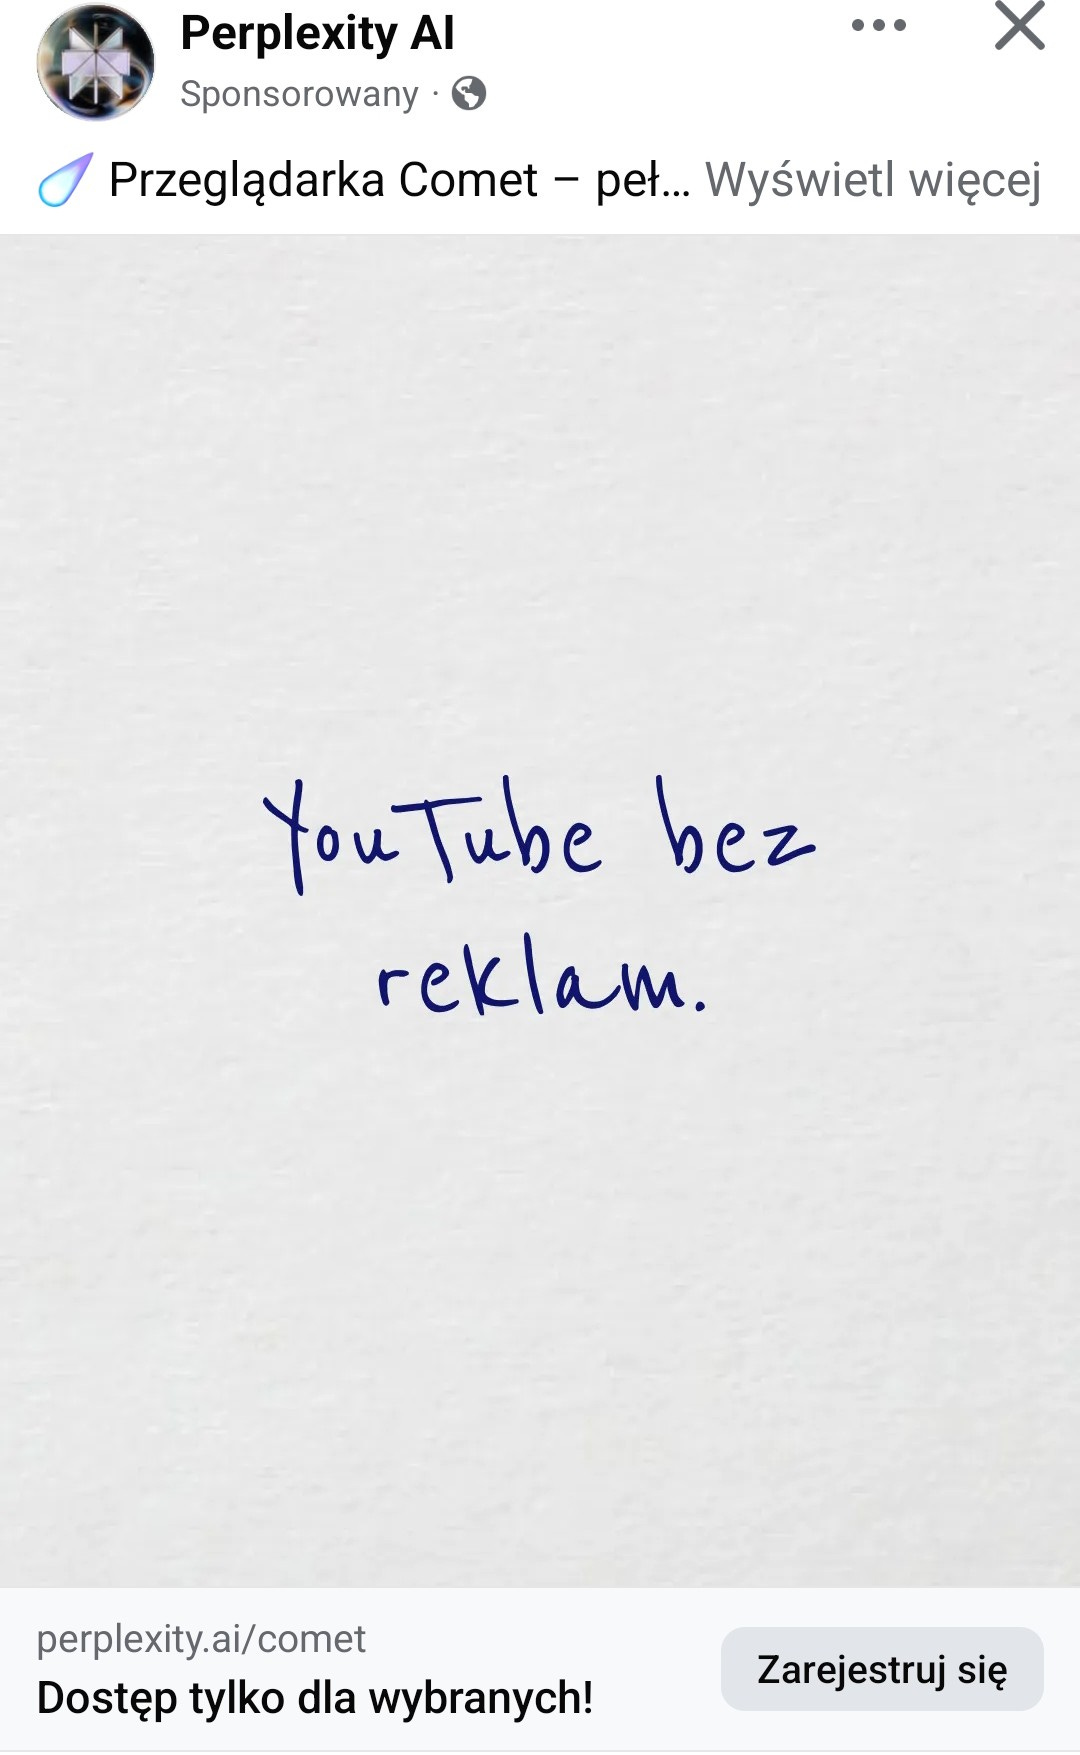 Perplexity AI
Sponsorowany ·
Przeglądarka Comet – peł... Wyświetl więcej
YouTube bez
reklam.
perplexity.ai/comet
Dostęp tylko dla wybranych!
Zarejestruj się